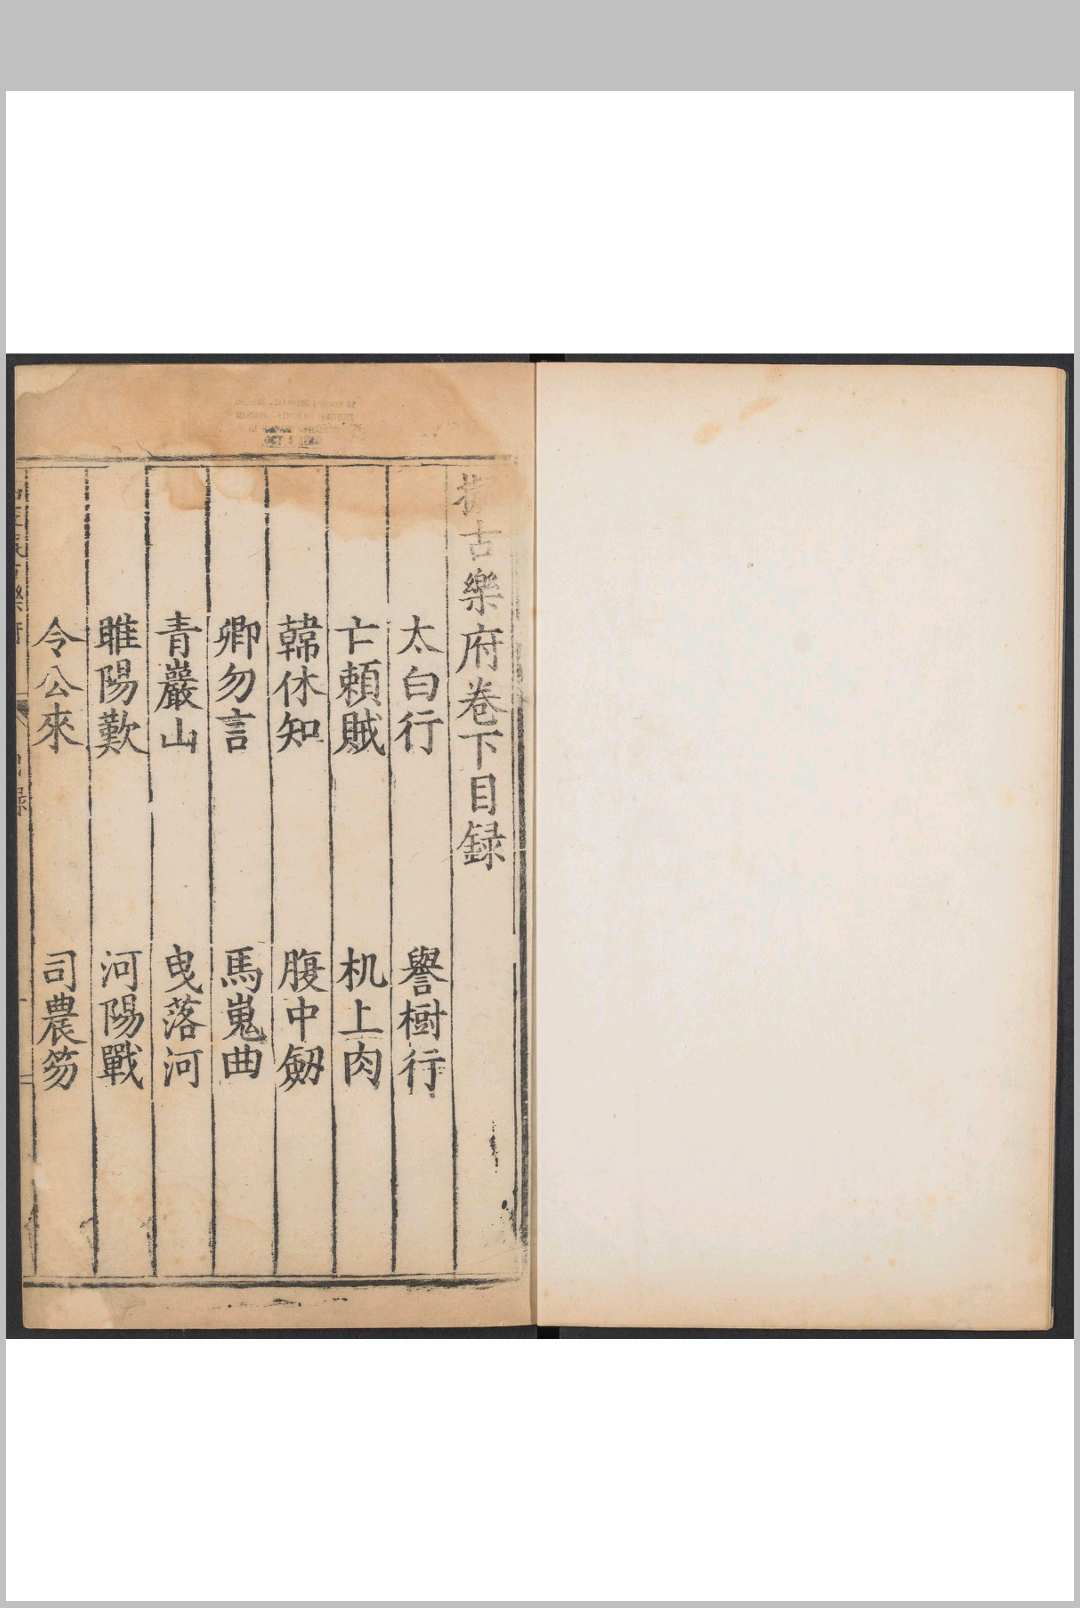 擬古樂府卷下目録
太白行 譽樹行
亡頼賊 机上肉
韓休知 腹中劒
卿勿言 馬嵬曲
青巖山 曳落河
睢陽歎 河陽戰
令公來 司農笏